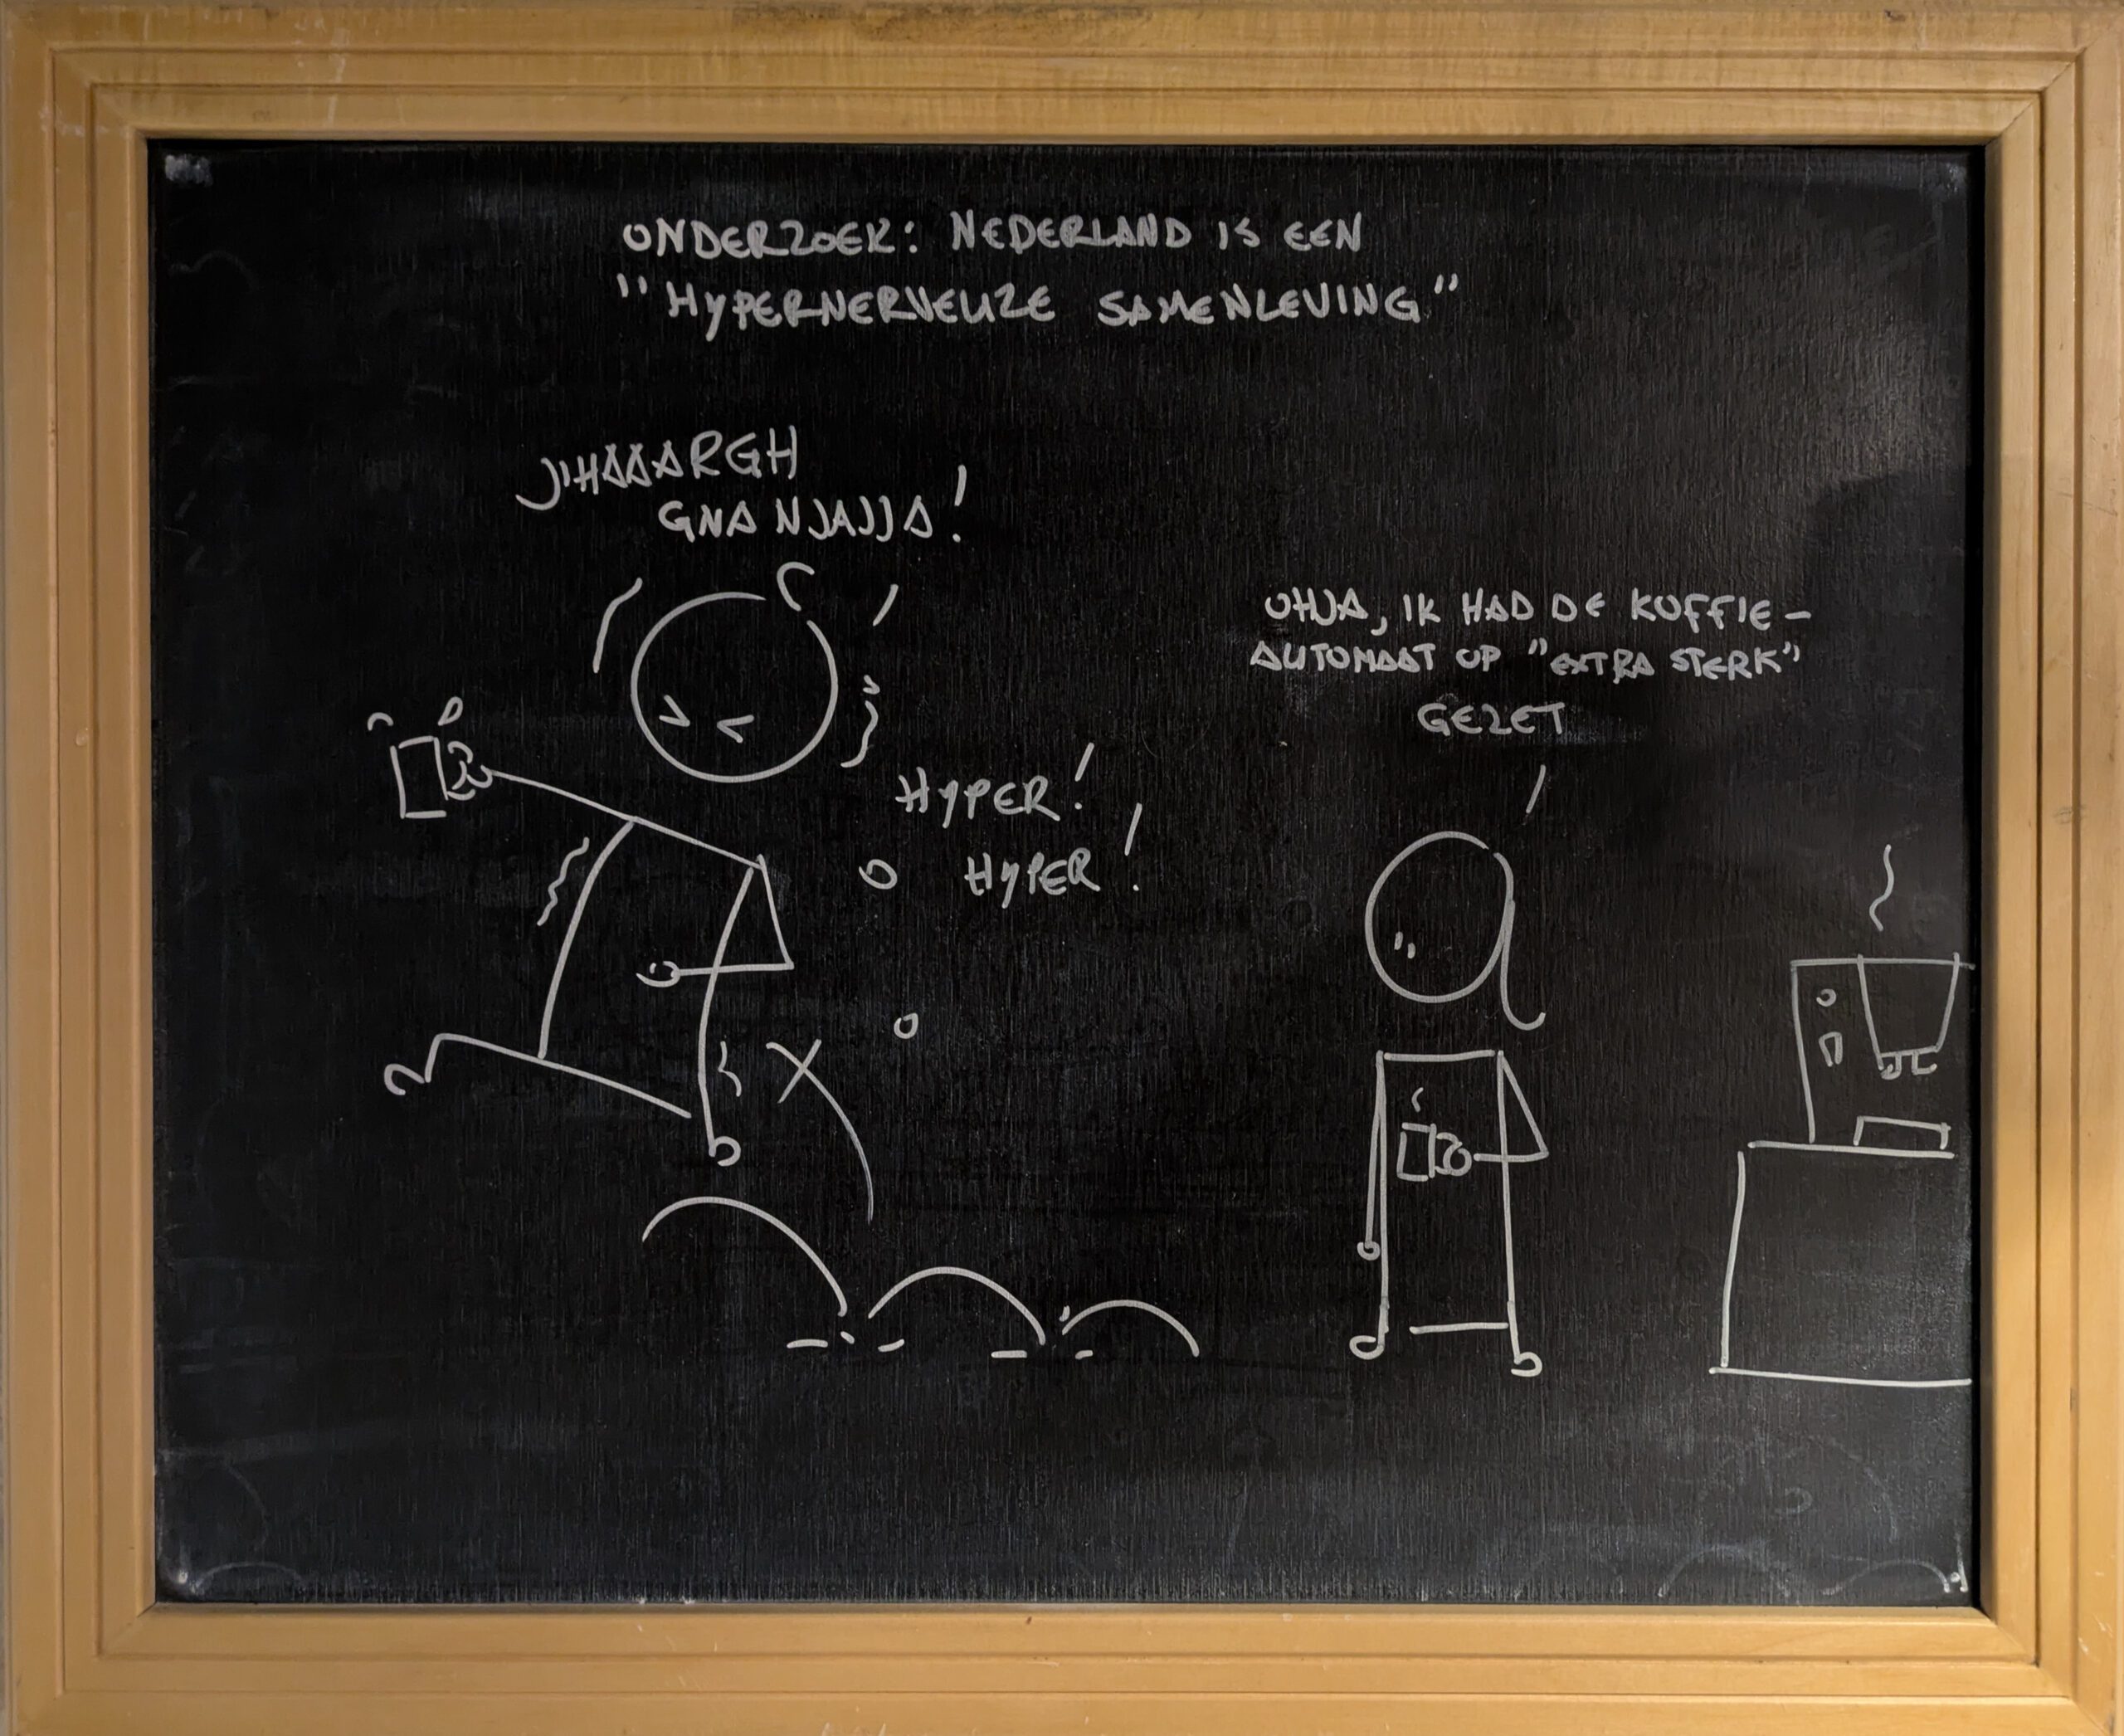 ONDERZOEK: NEDERLAND IS EEN
"HYPERNERVEUZE SAMENLEVING"
JIHAAARGH
GNANJAJJA!
HYPER!
HYPER!
OHJA, IK HAD DE KOFFIE-
AUTOMAAT OP "EXTRA STERK"
GEZET